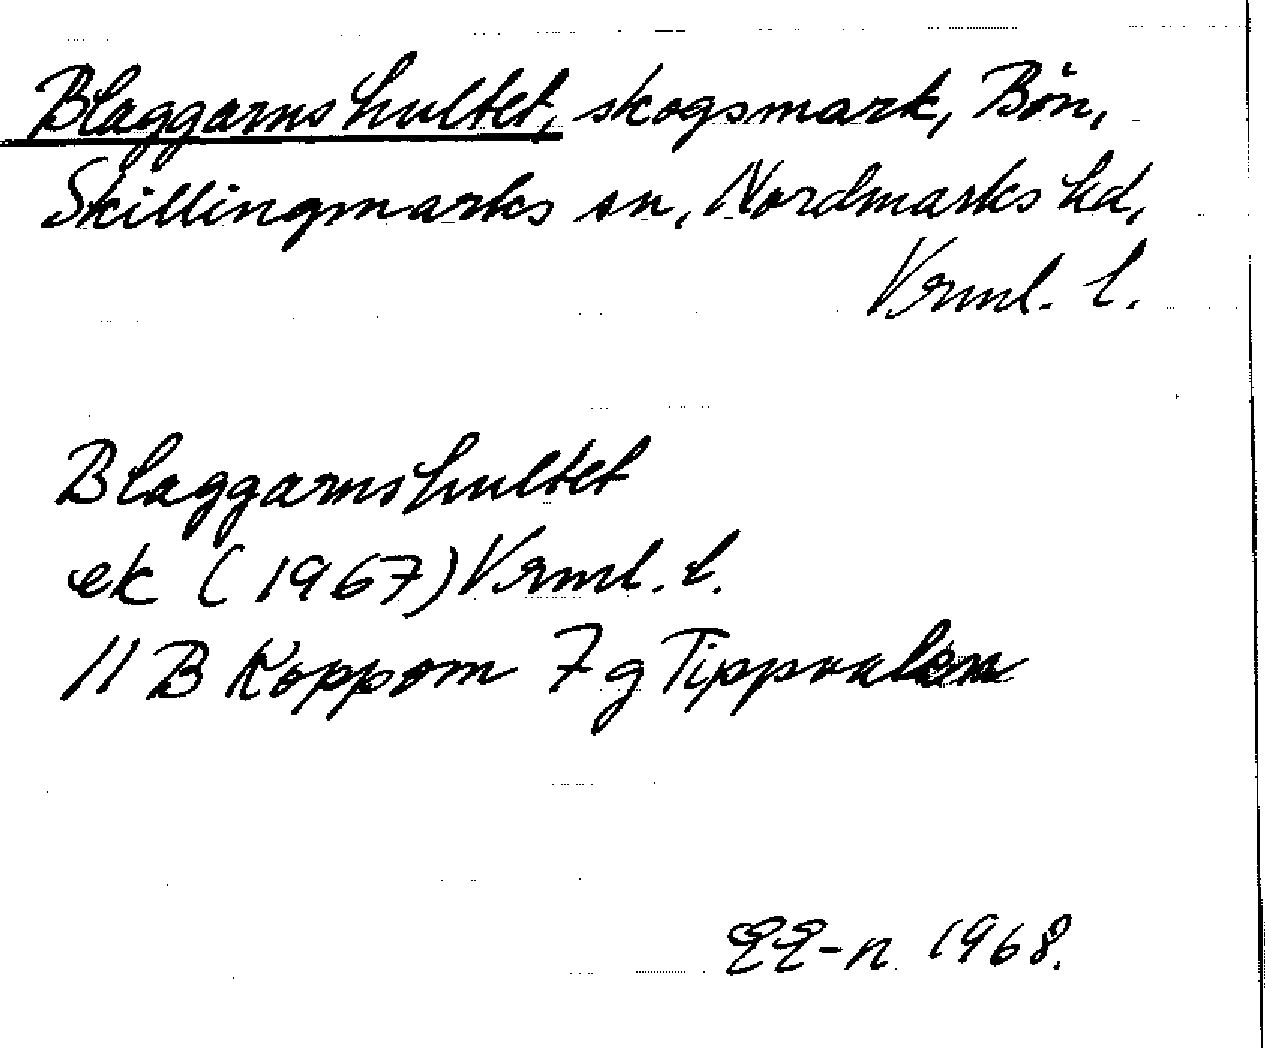 Blaggarnshultet, skogsmark, Bön,
Skillingmarks sn, Nordmarks hd,
Vrml. l.
Blaggarnshultet
ek (1967) Vrml. l.
11 B Koppom 7 g
EE-n 1968.